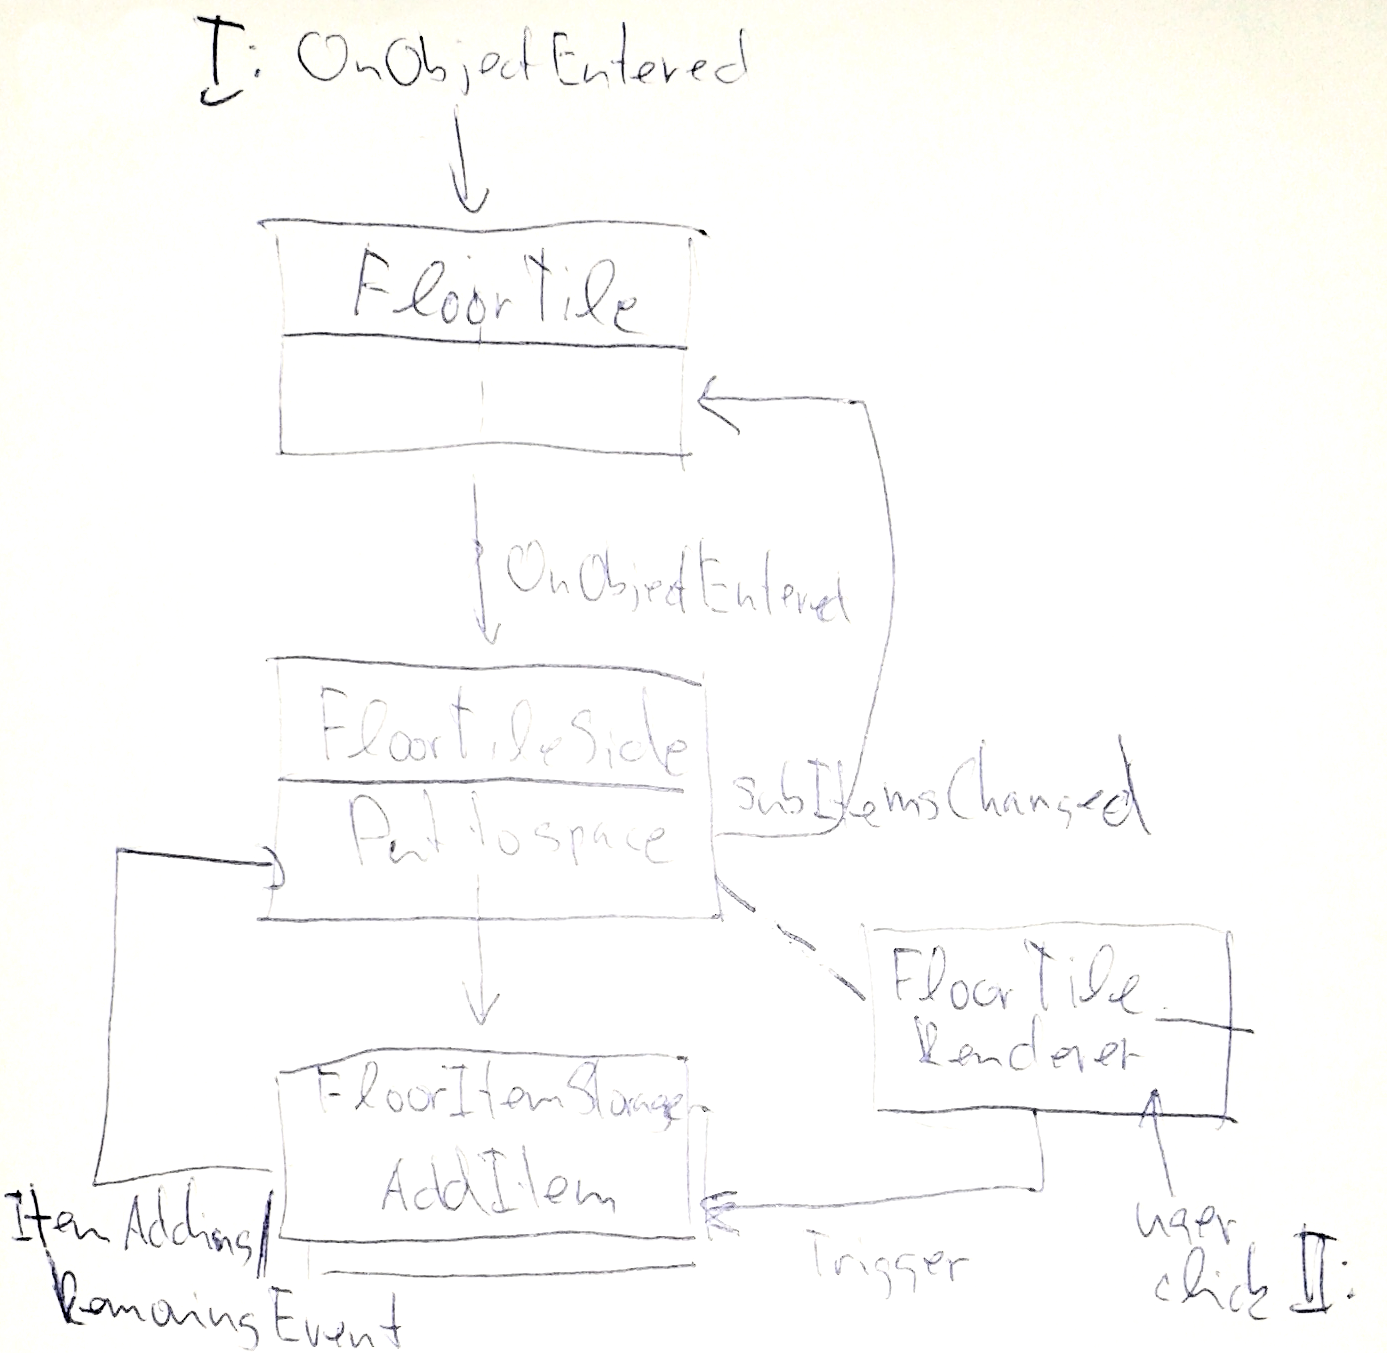 I: OnObjectEntered
FloorTile
OnObjectEntered
FloorTileSide
subItemsChanged
Put to space
FloorTile
Renderer
FloorItemStorage
AddItem
Item Adding/
Removing Event
Trigger
user
click II: